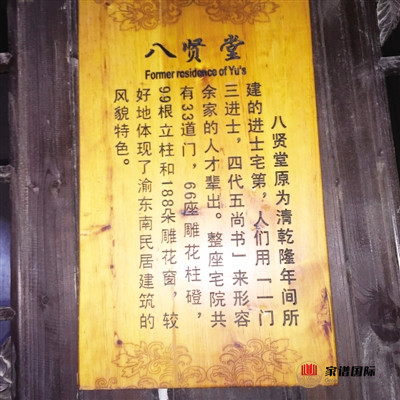 八贤堂
Former residence of Yu's
八贤堂原为清乾隆年间所
建的进士宅第，人们用「一门
三进士，四代五尚书」来形容
余家的人才辈出。整座宅院共
有33道门，66座雕花柱磴，
99根立柱和188朵雕花窗，较
好地体现了渝东南民居建筑的
风貌特色。
家谱国际